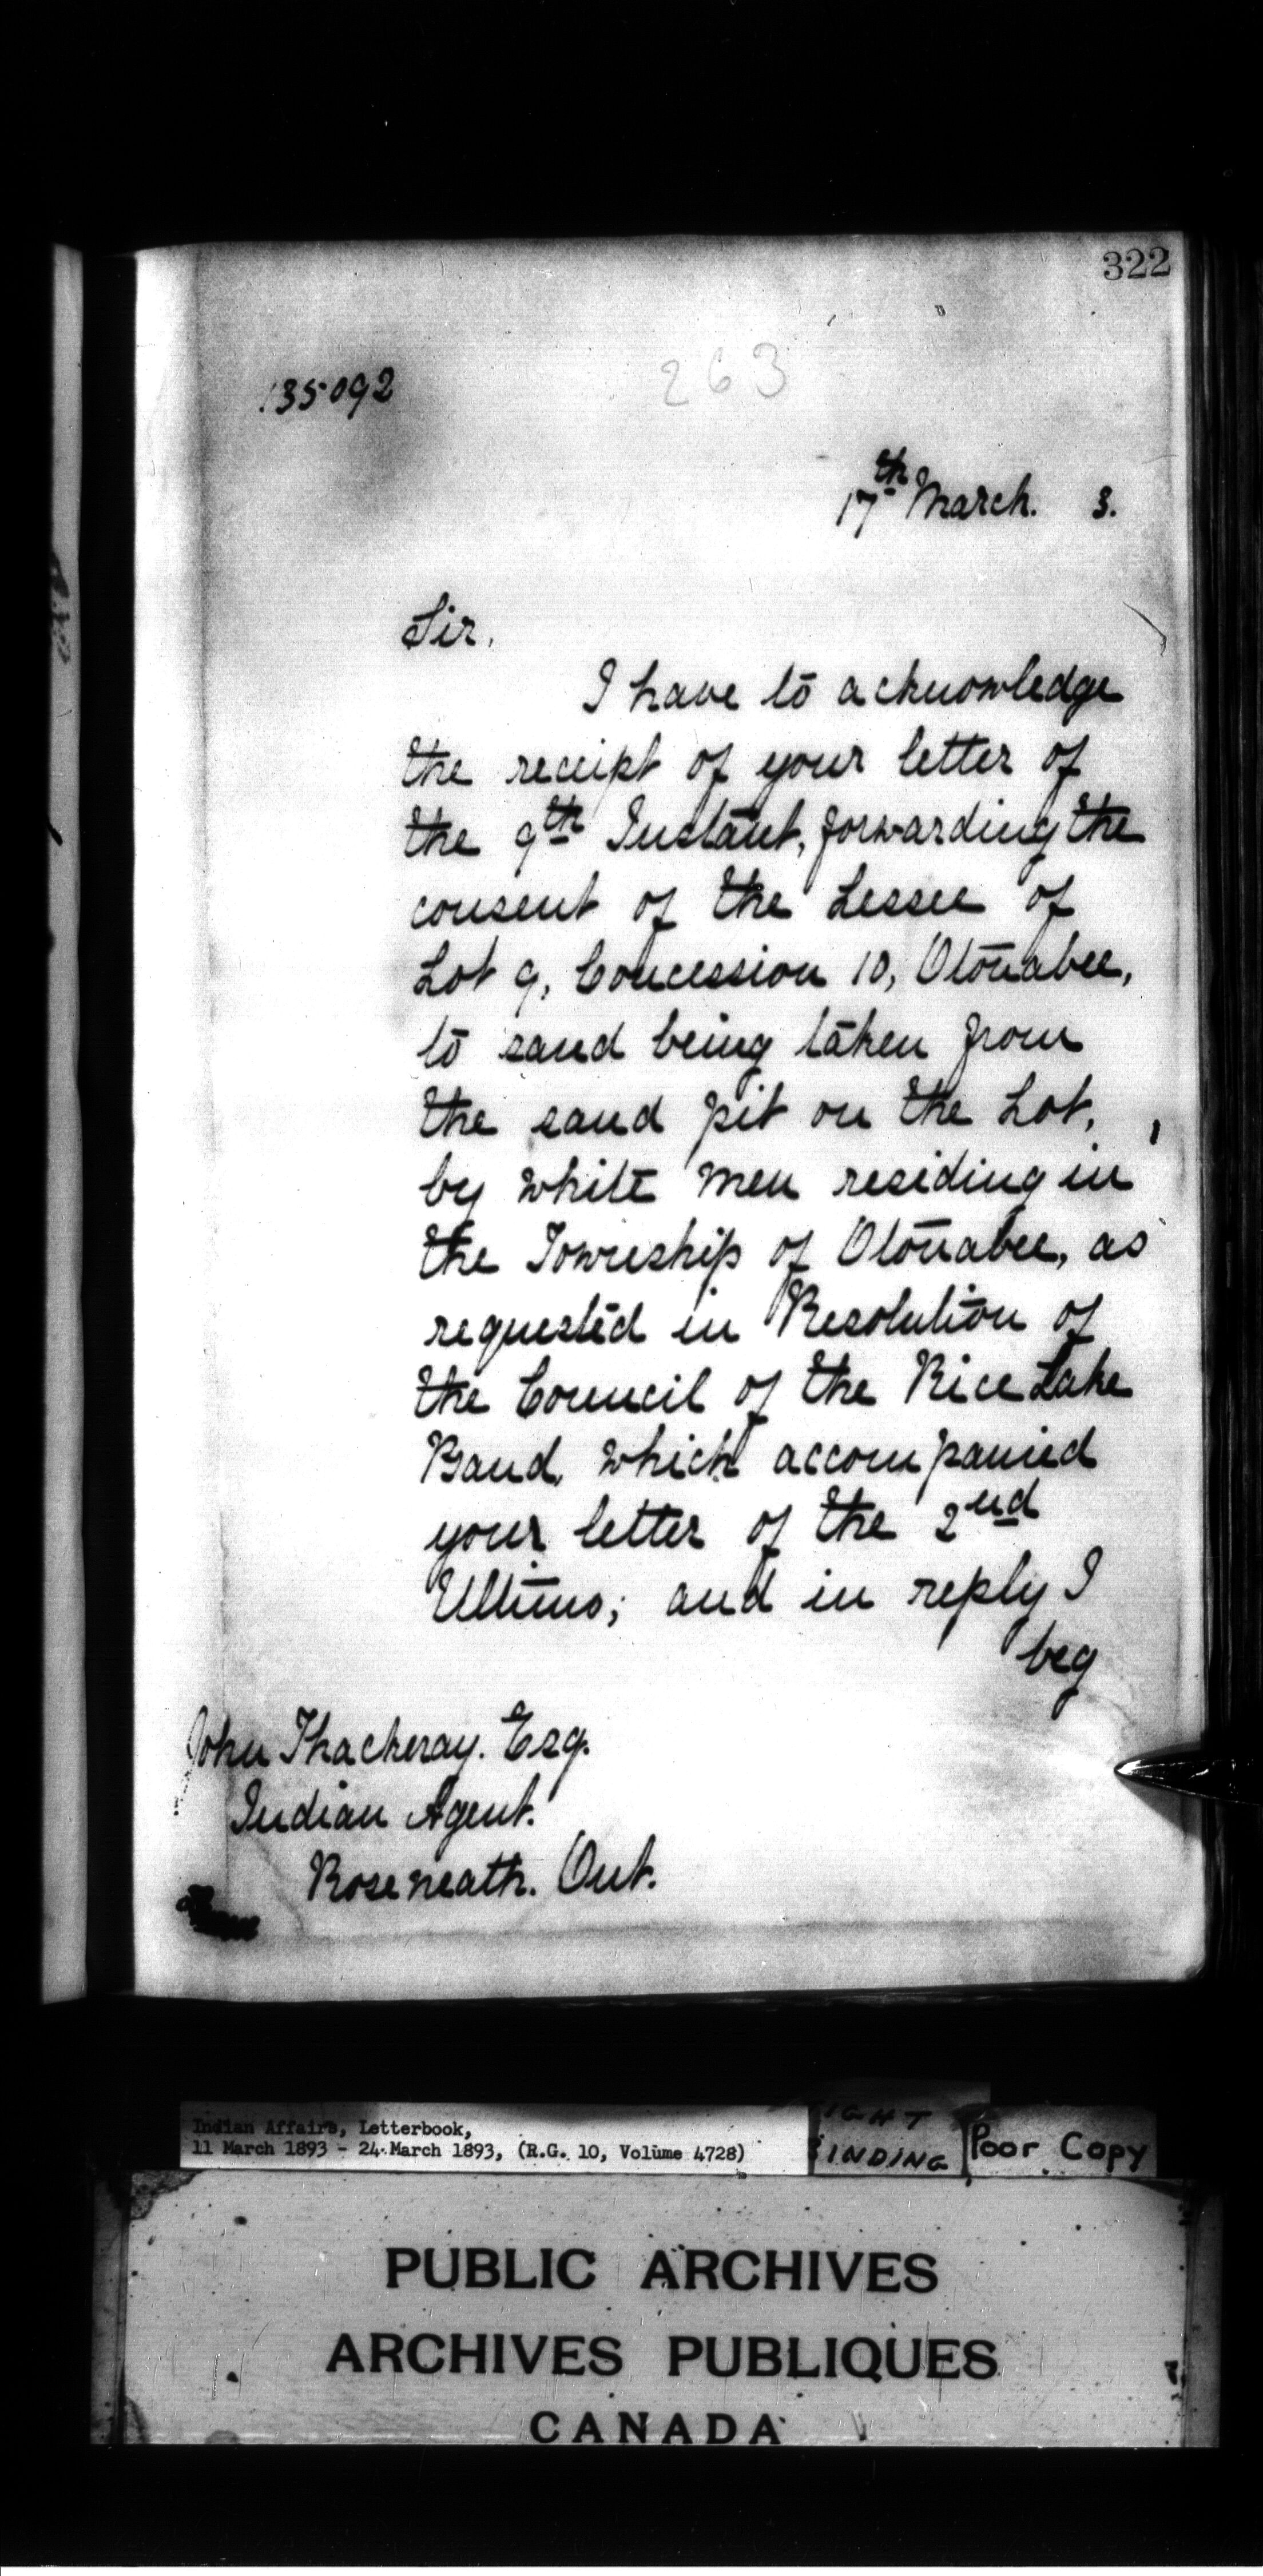 322
263
135092
17th March. 3.
Sir,
I have to acknowledge
the receipt of your letter of
the 9th Instant, forwarding the
consent of the Lessee of
Lot 9, Concession 10, Otonabee,
to sand being taken from
the sand pit on the Lot,
by white men residing in
the Township of Otonabee, as
requested in Resolution of
the Council of the Rice Lake
Band, which accompanied
your letter of the 2nd
Ultimo; and in reply I
beg
John Thackeray. Esq.
Indian Agent.
Roseneath. Ont.
Indian Affairs, Letterbook,
11 March 1893 - 24 March 1893, (R.G. 10, Volume 4728)
Poor Copy
PUBLIC ARCHIVES
ARCHIVES PUBLIQUES
CANADA